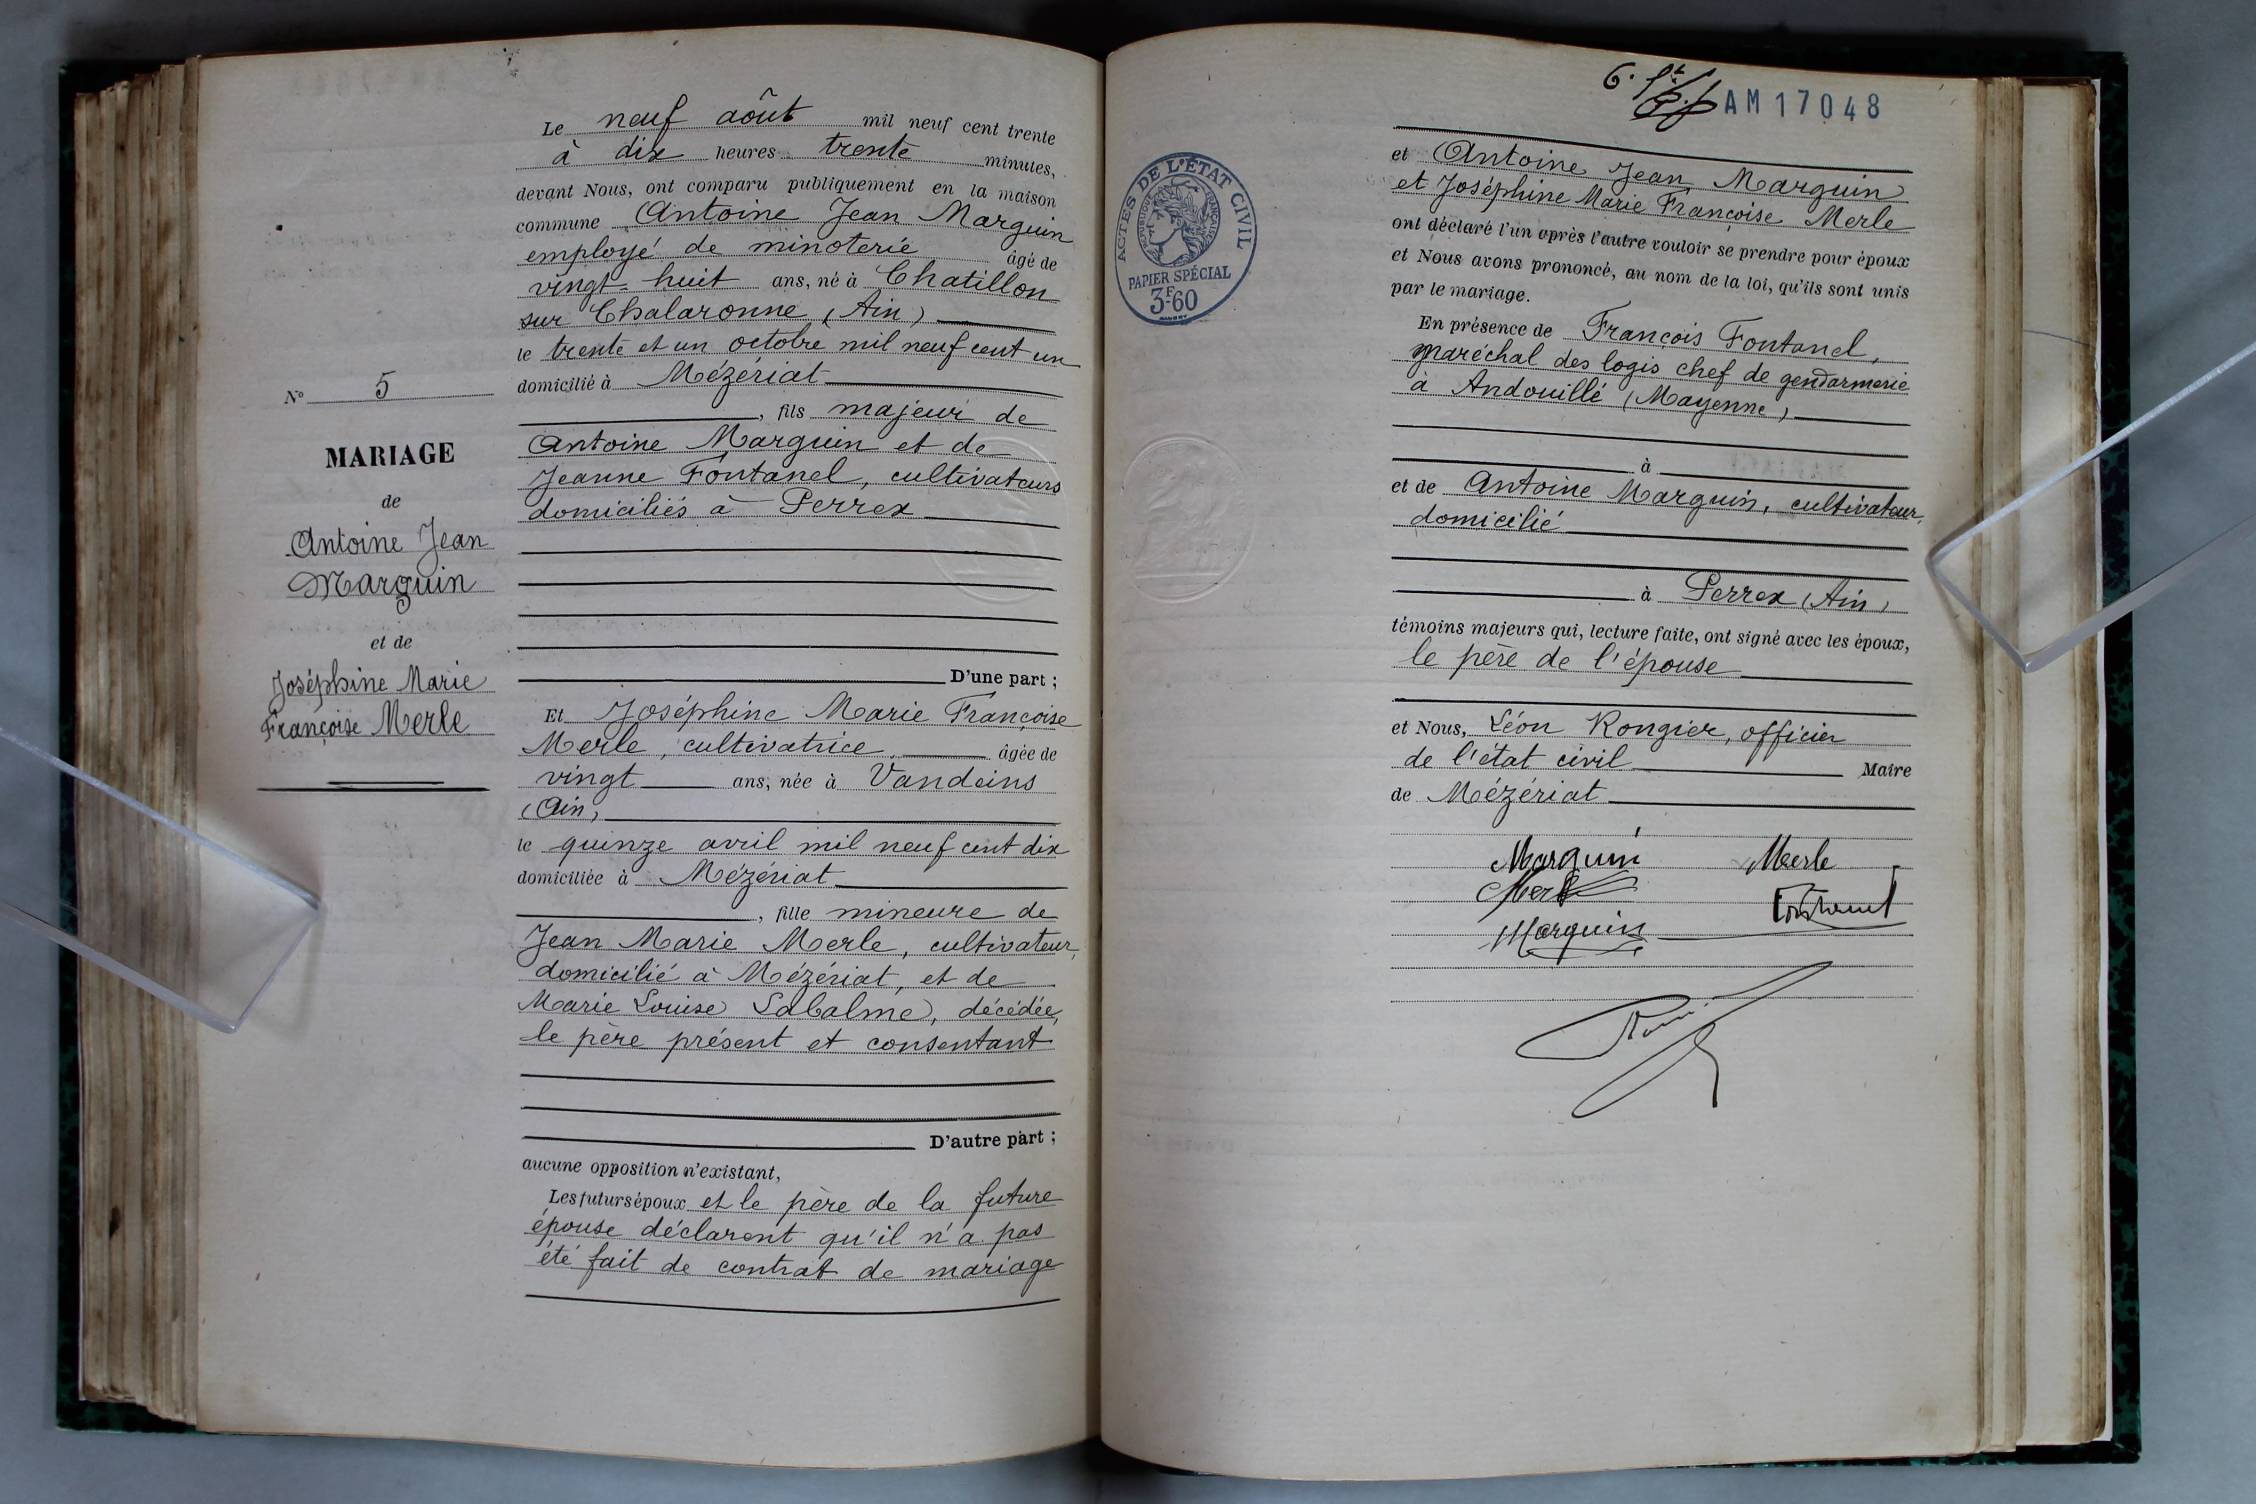 Le neuf août mil neuf cent trente
à dix heures trente minutes,
devant Nous, ont comparu publiquement en la maison
commune Antoine Jean Marguin
employé de minoterie âgé de
vingt-huit ans, né à Chatillon
sur Chalaronne (Ain)
le trente et un octobre mil neuf cent un
domicilié à Mézériat
, fils majeur de
Antoine Marguin et de
Jeanne Fontanel, cultivateurs
domiciliés à Perrex
D'une part ;
Et Joséphine Marie Françoise
Merle, cultivatrice, âgée de
vingt ans, née à Vandeins
(Ain)
le quinze avril mil neuf cent dix
domiciliée à Mézériat
, fille mineure de
Jean Marie Merle, cultivateur,
domicilié à Mézériat, et de
Marie Louise Labalme, décédée,
le père présent et consentant
D'autre part ;
aucune opposition n'existant,
Les futurs époux et le père de la future
épouse déclarent qu'il n'a pas
été fait de contrat de mariage
N° 5
MARIAGE
de
Antoine Jean
Marguin
et de
Joséphine Marie
Françoise Merle
AM17048
ACTES DE L'ÉTAT CIVIL
RÉPUBLIQUE FRANÇAISE
PAPIER SPÉCIAL
3F.60
et Antoine Jean Marguin
et Joséphine Marie Françoise Merle
ont déclaré l'un après l'autre vouloir se prendre pour époux
et Nous avons prononcé, au nom de la loi, qu'ils sont unis
par le mariage.
En présence de François Fontanel,
maréchal des logis chef de gendarmerie
à Andouillé (Mayenne)
à
et de Antoine Marguin, cultivateur,
domicilié
à Perrex (Ain)
témoins majeurs qui, lecture faite, ont signé avec les époux,
le père de l'épouse
et Nous, Léon Rongier, officier
de l'état civil Maire
de Mézériat
Marguin Merle
Merle Fontanel
Marguin